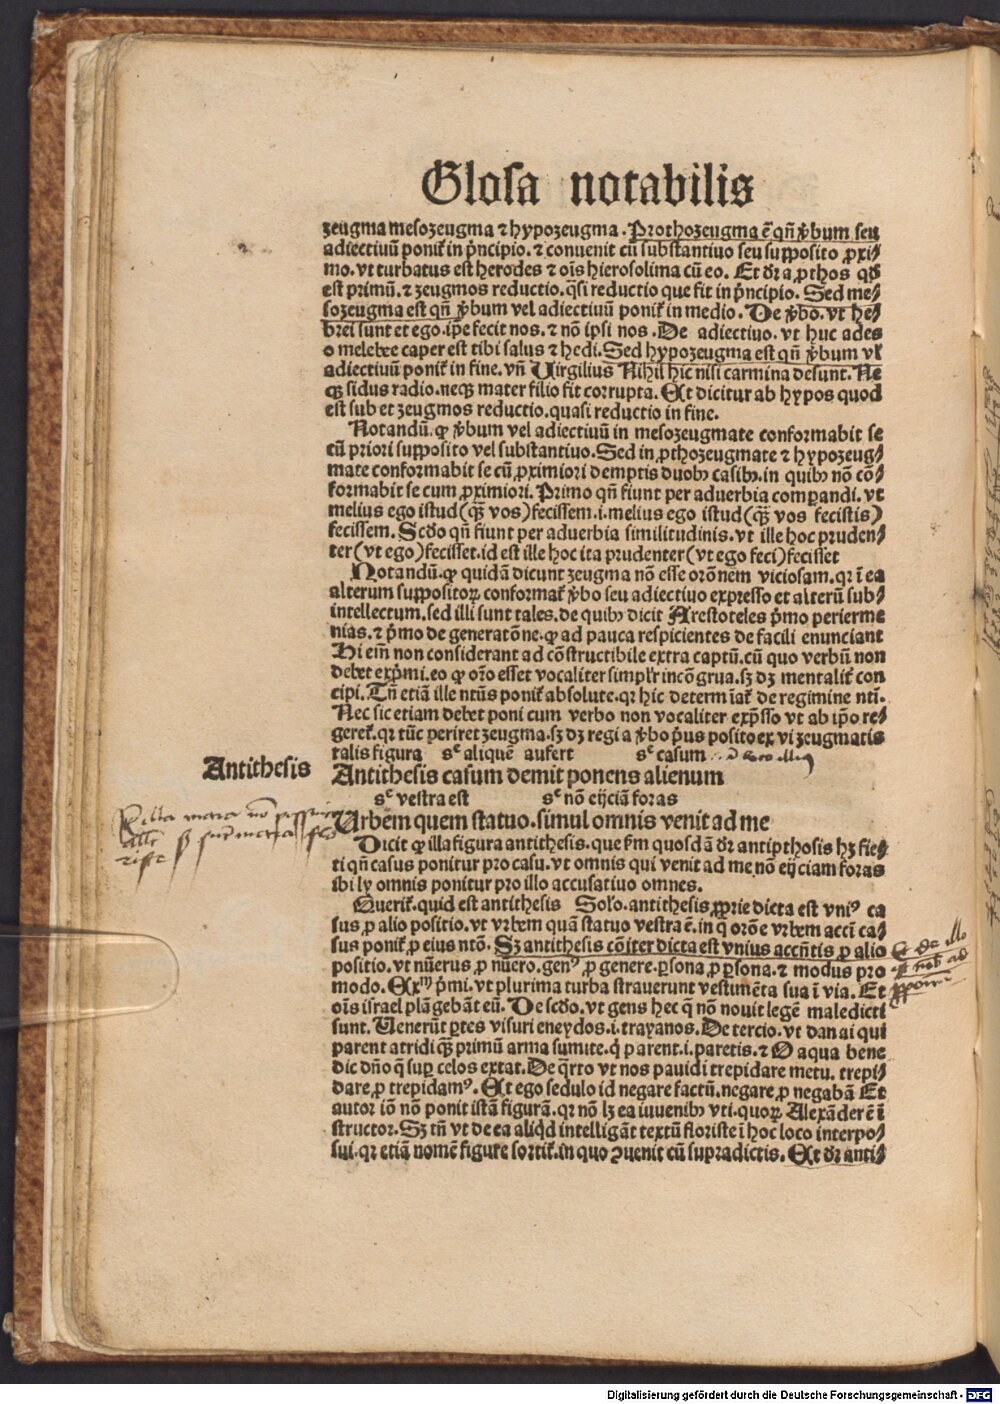 Glosa notabilis
zeugma mesozeugma ⁊ hypozeugma. Prothozeugma ē qñ v̄bum seu
adiectiuū ponit̄ in p̄ncipio. ⁊ conuenit cū substantiuo seu supposito ꝓxi⸗
mo. vt turbatus est herodes ⁊ oīs hierosolima cū eo. Et dr̄ a ꝓthos qd̄
est primū. ⁊ zeugmos reductio. q̄si reductio que fit in p̄ncipio. Sed me⸗
sozeugma est qñ v̄bum vel adiectiuū ponit̄ in medio. De v̄bo. vt he⸗
brei sunt et ego. ip̄e fecit nos. ⁊ nō ipsi nos. De adiectiuo. vt huc ades
o melebee caper est tibi salus ⁊ hedi. Sed hypozeugma est qñ v̄bum vl̄
adiectiuū ponit̄ in fine. vñ Uirgilius Nihil hic nisi carmina desunt. Ne
qꝫ sidus radio. neqꝫ mater filio fit corrupta. Et dicitur ab hypos quod
est sub et zeugmos reductio. quasi reductio in fine.
Notandū. ꝙ v̄bum vel adiectiuū in mesozeugmate conformabit se
cū priori supposito vel substantiuo. Sed in ꝓthozeugmate ⁊ hypozeug⸗
mate conformabit se cū ꝓximiori demptis duobꝫ casibꝫ. in quibꝫ nō cō⸗
formabit se cum ꝓximiori. Primo qñ fiunt per aduerbia comꝑandi. vt
melius ego istud (qꝫ̄ vos) fecissem. i. melius ego istud (qꝫ̄ vos fecistis)
fecissem. Scd̄o qñ fiunt per aduerbia similitudinis. vt ille hoc pruden⸗
ter (vt ego) fecisset. id est ille hoc ita prudenter (vt ego feci) fecisset
Notandū. ꝙ quidā dicunt zeugma nō esse orōnem viciosam. qr ī ea
alterum suppositoꝝ conformat̄ v̄bo seu adiectiuo expresso et alterū sub⸗
intellectum. sed illi sunt tales. de quibꝫ dicit Arestoteles p̄mo perierme
nias. ⁊ p̄mo de generatōne. ꝙ ad pauca respicientes de facili enunciant
Hi eim̄ non considerant ad cōstructibile extra captū. cū quo verbū non
debet exp̄mi. eo ꝙ or̄o esset vocaliter simplr̄ incōgrua. sꝫ dꝫ mentalit̄ con
cipi. Tñ etiā ille ntūs ponit̄ absolute. qr hic determīat̄ de regimine nti.
Nec sic etiam debet poni cum verbo non vocaliter exp̄sso vt ab ip̄o re⸗
geret̄. qr tūc periret zeugma. sꝫ dꝫ regi a v̄bo p̄us posito ex vi zeugmatis
talis figura sᶜ aliquē aufert sᶜ casum
Antithesis
Antithesis casum demit ponens alienum
sᶜ vestra est sᶜ nō eijciā foras
Urbem quem statuo. simul omnis venit ad me
Dicit ꝙ illa figura antithesis. que s̄m quosdā dr̄ antipthosis hꝫ fie⸗
ri qñ casus ponitur pro casu. vt omnis qui venit ad me. nō eijciam foras
ibi ly omnis ponitur pro illo accusatiuo omnes.
Querit̄. quid est antithesis Solo. antithesis ꝓprie dicta est vniꝰ ca
sus ꝓ alio positio. vt vrbem quā statuo vestra ē. in q̄ orōe vrbem acci ca⸗
sus ponit̄ ꝓ eius ntō. Sꝫ antithesis cōiter dicta est vnius accn̄tis ꝓ alio
positio. vt nūerus ꝓ nūero. genꝰ ꝓ genere. ꝑsona ꝓ ꝑsona. ⁊ modus pro
modo. Exᵐ p̄mi. vt plurima turba strauerunt vestimēta sua ī via. Et
oīs israel plāgebāt eū. De scd̄o. vt gens hec q̄ nō nouit legē maledicti
sunt. Uenerūt ꝑtes visuri eneydos. i. troyanos. De tercio. vt danai qui
parent atridi qꝫ̄ primū arma sumite. q̄ parent. i. paretis. ⁊ O aqua bene
dic dño q̄ suꝑ celos extat. De q̄rto vt nos pauidi trepidare metu. trepi⸗
dare. ꝓ trepidamꝰ. Et ego sedulo id negare factū. negare. ꝓ negabā Et
autor iō nō ponit istā figurā. qr nō lꝫ ea iuuenibꝫ vti. quoꝝ Alexāder ē ī
structor. Sꝫ tñ vt de ea aliqd̄ intelligāt textū floriste ī hoc loco interpo⸗
sui. qr etiā nomē figure sortit̄. in quo ꝯuenit cū supradictis. Et dr̄ anti⸗
Digitalisierung gefördert durch die Deutsche Forschungsgemeinschaft - DFG